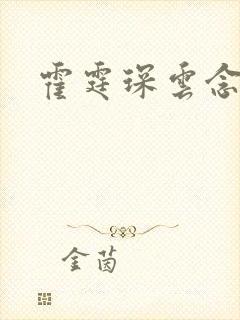 霍霆琛雲念
金茵